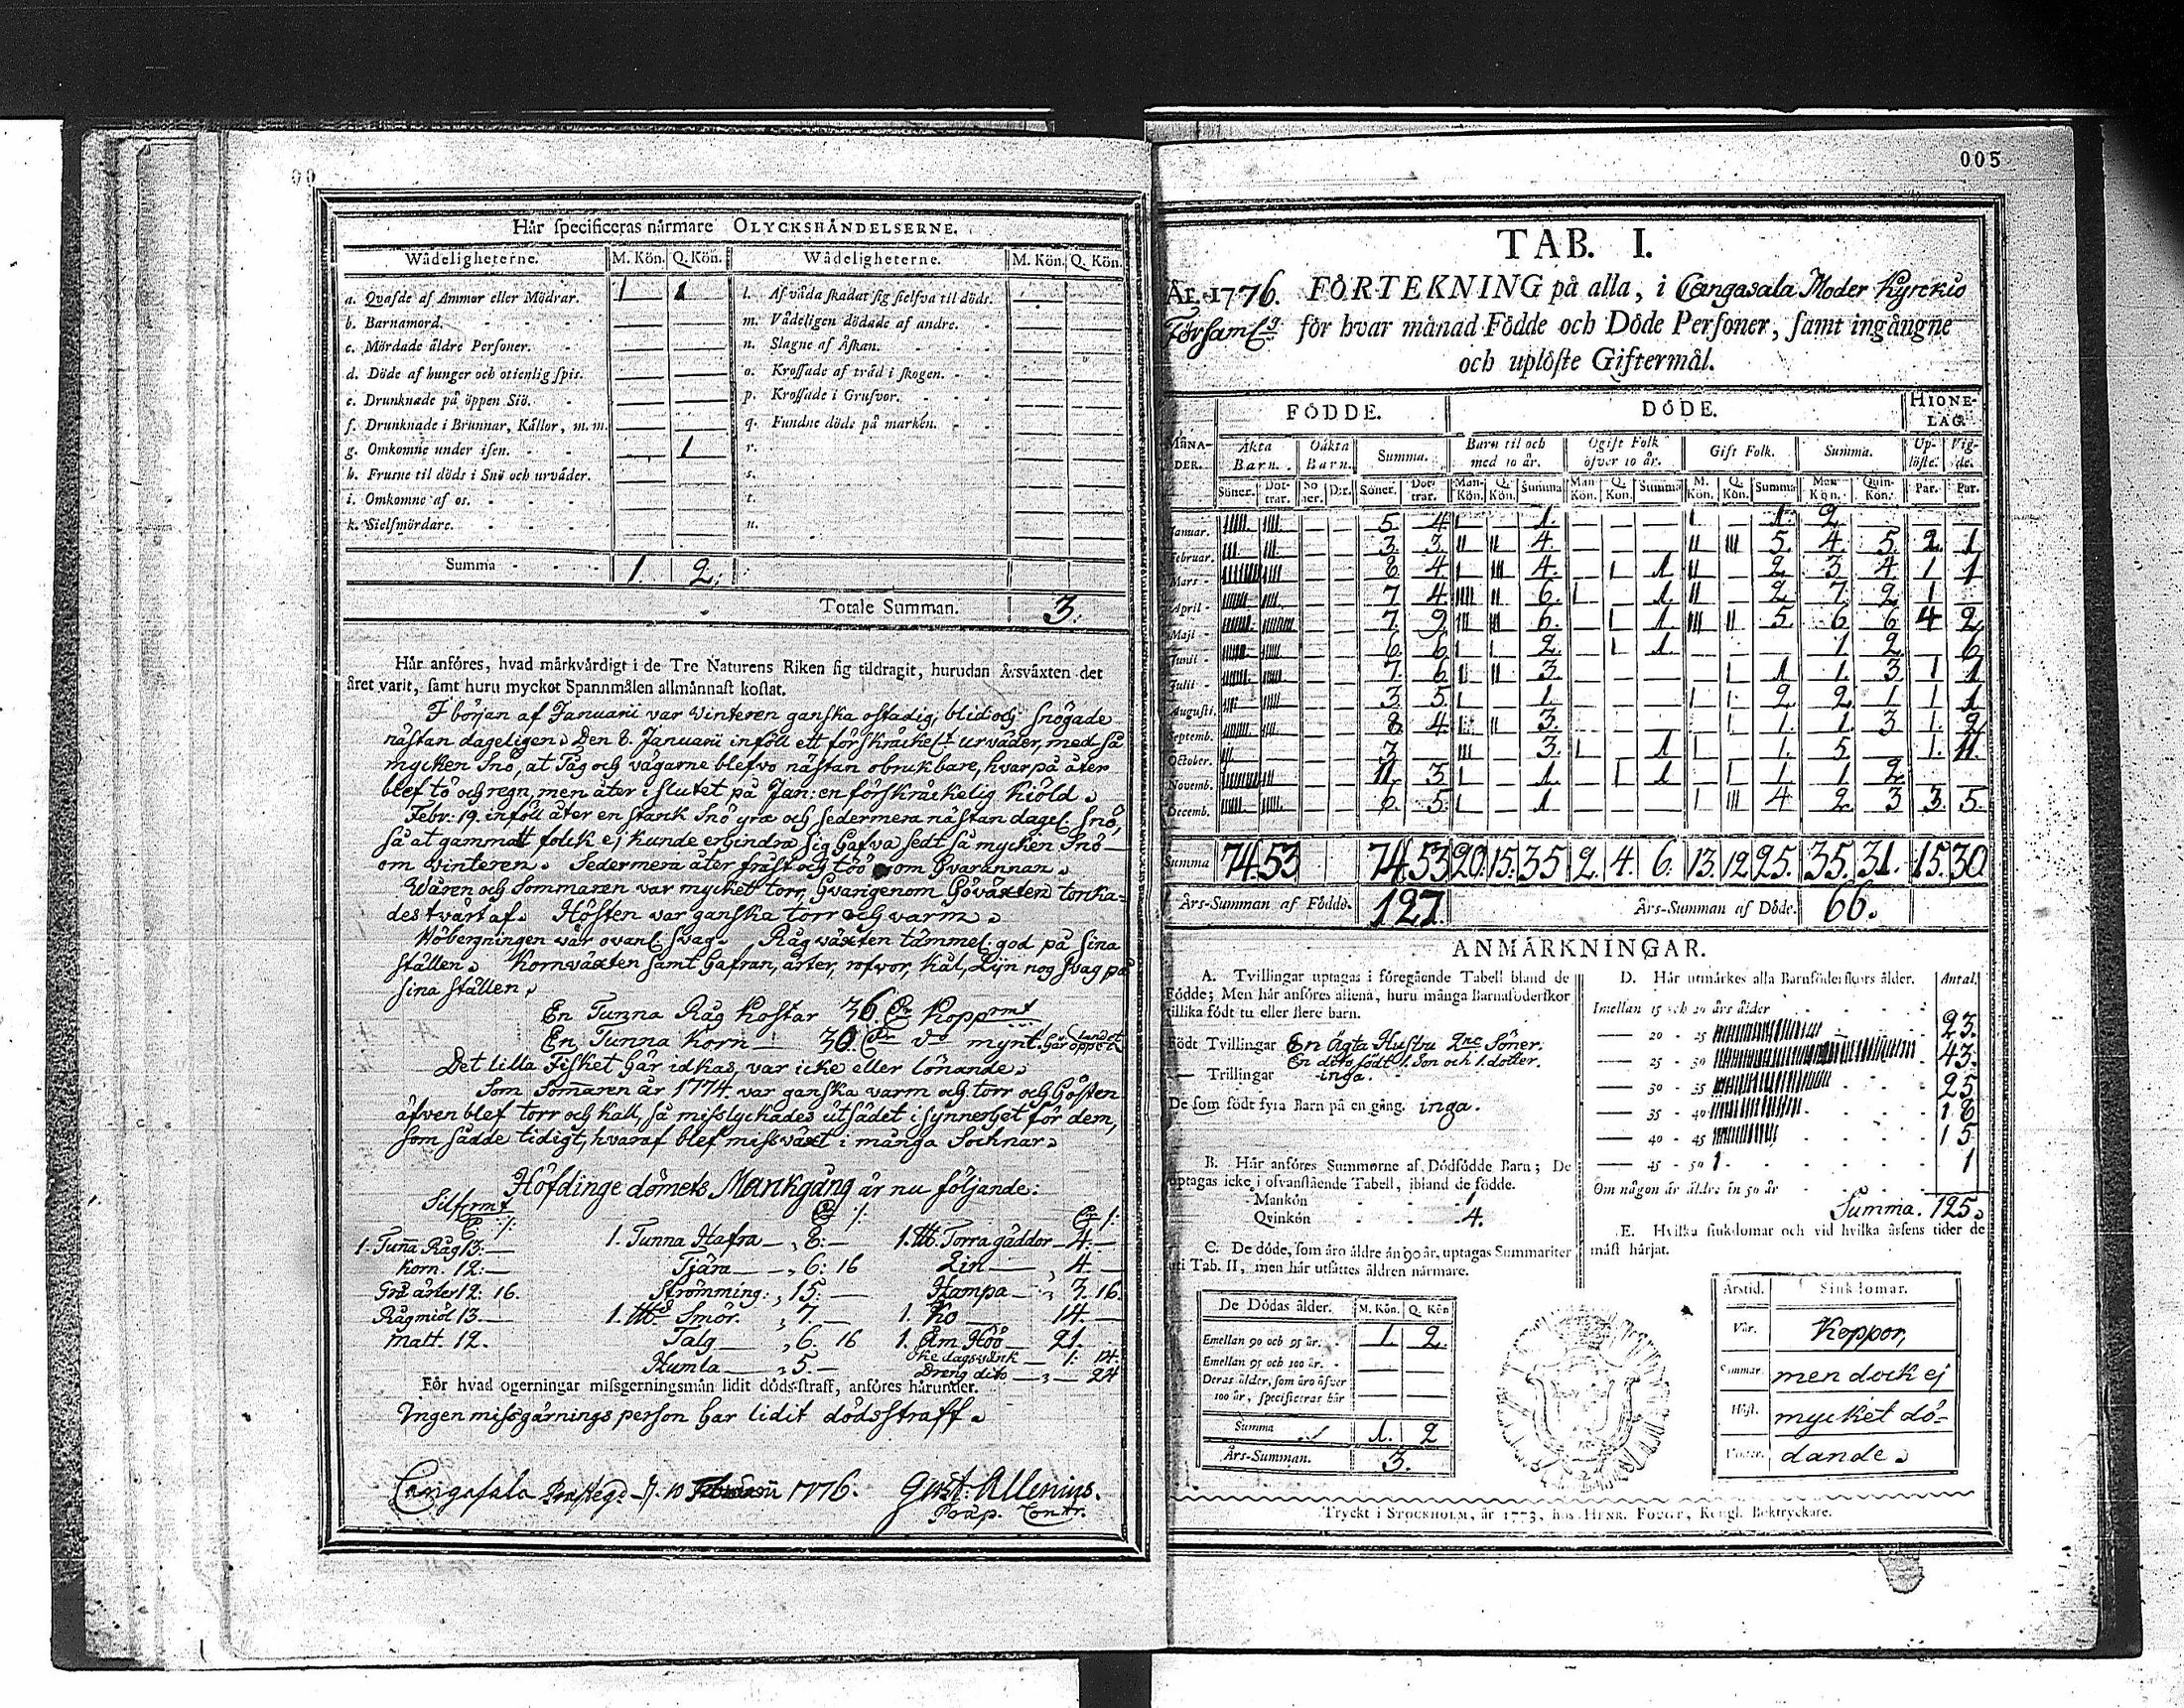 00
Hår ſpecificeras nårmare OLYCKSHÅNDELSERNE.
Wådeligheterne. M. Kön. Q. Kön. Wådeligheterne. M. Kön. Q. Kön.
a. Qvafde af Ammor eller Mödrar. 1 1 l. Af våda ſkadat ſig ſielfva til döds. — —
b. Barnamord. — — m. Vådeligen dödade af andre. — —
c. Mördade äldre Perſoner. — — n. Slagne af Åſkan. — —
d. Döde af hunger och otienlig ſpis. — — o. Kroſſade af träd i ſkogen. — —
e. Drunknade på öppen Siö. — — p. Kroſſade i Grufvor. — —
f. Drunknade i Brunnar, Källor, m.m. — — q. Fundne döde på marken. — —
g. Omkomne under iſen. — 1 r. — —
h. Fruſne til döds i Snö och urväder. — — s. — —
i. Omkomne af os. — — t. — —
k. Sielfmördare. — — u. — —
Summa 1 2.
Totale Summan. 3.
Hår anföres, hvad mårkvårdigt i de Tre Naturens Riken ſig tildragit, hurudan Årsvåxten det
året varit, ſamt huru myckot Spannmålen allmånnaſt koſtat.
I början af Januarii var Winteren ganſka oſtadig, blid och ſnögade
näſtan dageligen. Den 8. Januarii inföll ett förſkräckel:t urväder, med ſå
mycken Snö, at Tåg och vägarne blefvo näſtan obrukbare, hvarpå åter
blef tö och regn, men åter i ſlutet på Jan: en förſkräckelig kiöld.
Febr: 19. inföll åter en ſtark Snö yra och ſedermera näſtan dagel. Snö,
ſå at gammalt folck ej kunde erhindra ſig hafva ſedt ſå mycken Snö
om Winteren. Sedermera åter froſt och töö om hvarannan.
Wåren och Sommaren var mycket torr, hvarigenom höväxten torka-
des tvärt af. Höſten var ganſka torr och varm.
Höbergningen var ovanl. ſvag. Råg växten tämmel. god på ſina
ſtällen. Kornväxten ſamt hafran, ärter, rofvor, Kål, Lijn nog ſvag på
ſina ſtällen.
En Tunna Råg koſtar 36. Dr Koppmt
En Tunna Korn 30. Dr do mynt. här
Det lilla Fiſket här idkas, var icke eller lönande.
Som Som̄aren år 1774. var ganſka varm och torr och höſten
äfven blef torr och kall, ſå miſslyckades utſädet i ſynnerhet för dem,
ſom ſådde tidigt, hvaraf blef miſsväxt i många Socknar.
Höfdinge dömets Markgång är nu följande:
Silfrmt
1. Tun̄a Råg 13:— 1. Tunna Hafra — 8:— 1. Torra gäddor — 4:—
Korn. 12:— Tjära — 6: 16 Lin — 4.—
Grå ärter 12: 16. Strömming: 15:— Hampa — 3. 16.
Rågmiöl 13.— 1. Smör. 7.— 1. Ko — 14.—
Malt. 12. Talg — 6. 16 1. Åm Höö — 21.
Humla — 5.— Öke dagsvärk — 1: 14.
Dreng dito — 24
För hvad ogerningar miſsgerningsmån lidit döds-ſtraff, anföres hårunder.
Ingen miſsgärnings perſon har lidit dödsſtraff.
Cangaſala Præſtegd d. 10 Februarii 1776. Guſt: Allenius.
Præp. Contr.
005
TAB. I.
År 1776. FÖRTEKNING på alla, i Cangasala Moder Kyrckio
Församlg för hvar månad Födde och Döde Perſoner, ſamt ingångne
och uplöſte Giftermål.
FÖDDE. DÖDE. HIONE-
LAG.
MÅNA-
DER. Äkta
Barn. Oäkta
Barn. Summa. Barn til och
med 10 år. Ogift Folk
öfver 10 år. Gift Folk. Summa. Up-
löſte. Vig-
de.
Söner. Döt-
trar. Sö
ner. D:r. Söner. Döt-
trar. Man-
Kön. Q.
Kön. Summa Man
Kön. Q.
Kön. Summa M.
Kön. Q.
Kön. Summa Man
Kön. Quin-
Kön. Par. Par.
Januar. 5 4 1. 1. 2
Februar. 3 3 4. 5. 4 5. 2. 1
Mars 8 4 4. 1 2 3 4 1 1
April 7 4 6. 1 2 7. 2 1
Maji 7. 9 6. 1 5 6 6 4 2
Junii 6 6 2. 1 1 2. 6
Julii 7. 6 3. 1 1. 3 1 1
Augusti. 3 5 1. 2 2 1 1 1
Septemb. 8 4 3. 1. 1. 3 1. 2
October. 3 3. 1 1. 5 1. 11.
Novemb. 11. 3 1 1 1 1 2
Decemb. 6 5 1 4 2 3 3. 5.
Summa 74 53 74 53 20 15 35 2. 4. 6. 13. 12 25. 35. 31. 15. 30
Års-Summan af Födde. 127. Års-Summan af Döde. 66.
ANMÄRKNINGAR.
A. Tvillingar uptagas i föregående Tabell bland de
Födde; Men hår anföres allenå, huru många Barnaföderſkor
tillika födt tu eller flere barn.
Födt Tvillingar En Ägta Huſtru 2ne Söner.
En dito födt 1. Son och 1. dotter.
— Trillingar inga.
De ſom födt fyra Barn på en gång. inga.
B. Hår anföres Summorne af Dödfödde Barn; De
uptagas icke i ofvanſtående Tabell, ibland de födde.
Mankön 1
Qvinkön 4.
C. De döde, ſom åro åldre ån 90 år, uptagas Summariter
uti Tab. II, men hår utſåttes åldren nårmare.
De Dödas ålder. M. Kön. Q. Kön
Emellan 90 och 95 år. 1. 2.
Emellan 95 och 100 år. — —
Deras ålder, ſom äro öfver
100 år, ſpecificeras här — —
Summa 1. 2
Års-Summan. 3.
D. Hår utmårkes alla Barnföderſkors ålder. Antal.
Imellan 15 och 20 års ålder
— 20 - 25 23.
— 25 - 30 43.
— 30 - 35 25
— 35 - 40 18
— 40 - 45 15
— 45 - 50 1 1
Om någon är äldre än 50 år
Summa. 125.
E. Hvilka ſiukdomar och vid hvilka årſens tider de
måſt hårjat.
Årstid. Siukdomar.
Vår. Koppor,
Sommar. men dock ej
Höſt. mycket dö-
Vinter. dande.
Tryckt i STOCKHOLM, år 1773, hos HENR. FOUGT, Kongl. Boktryckare.